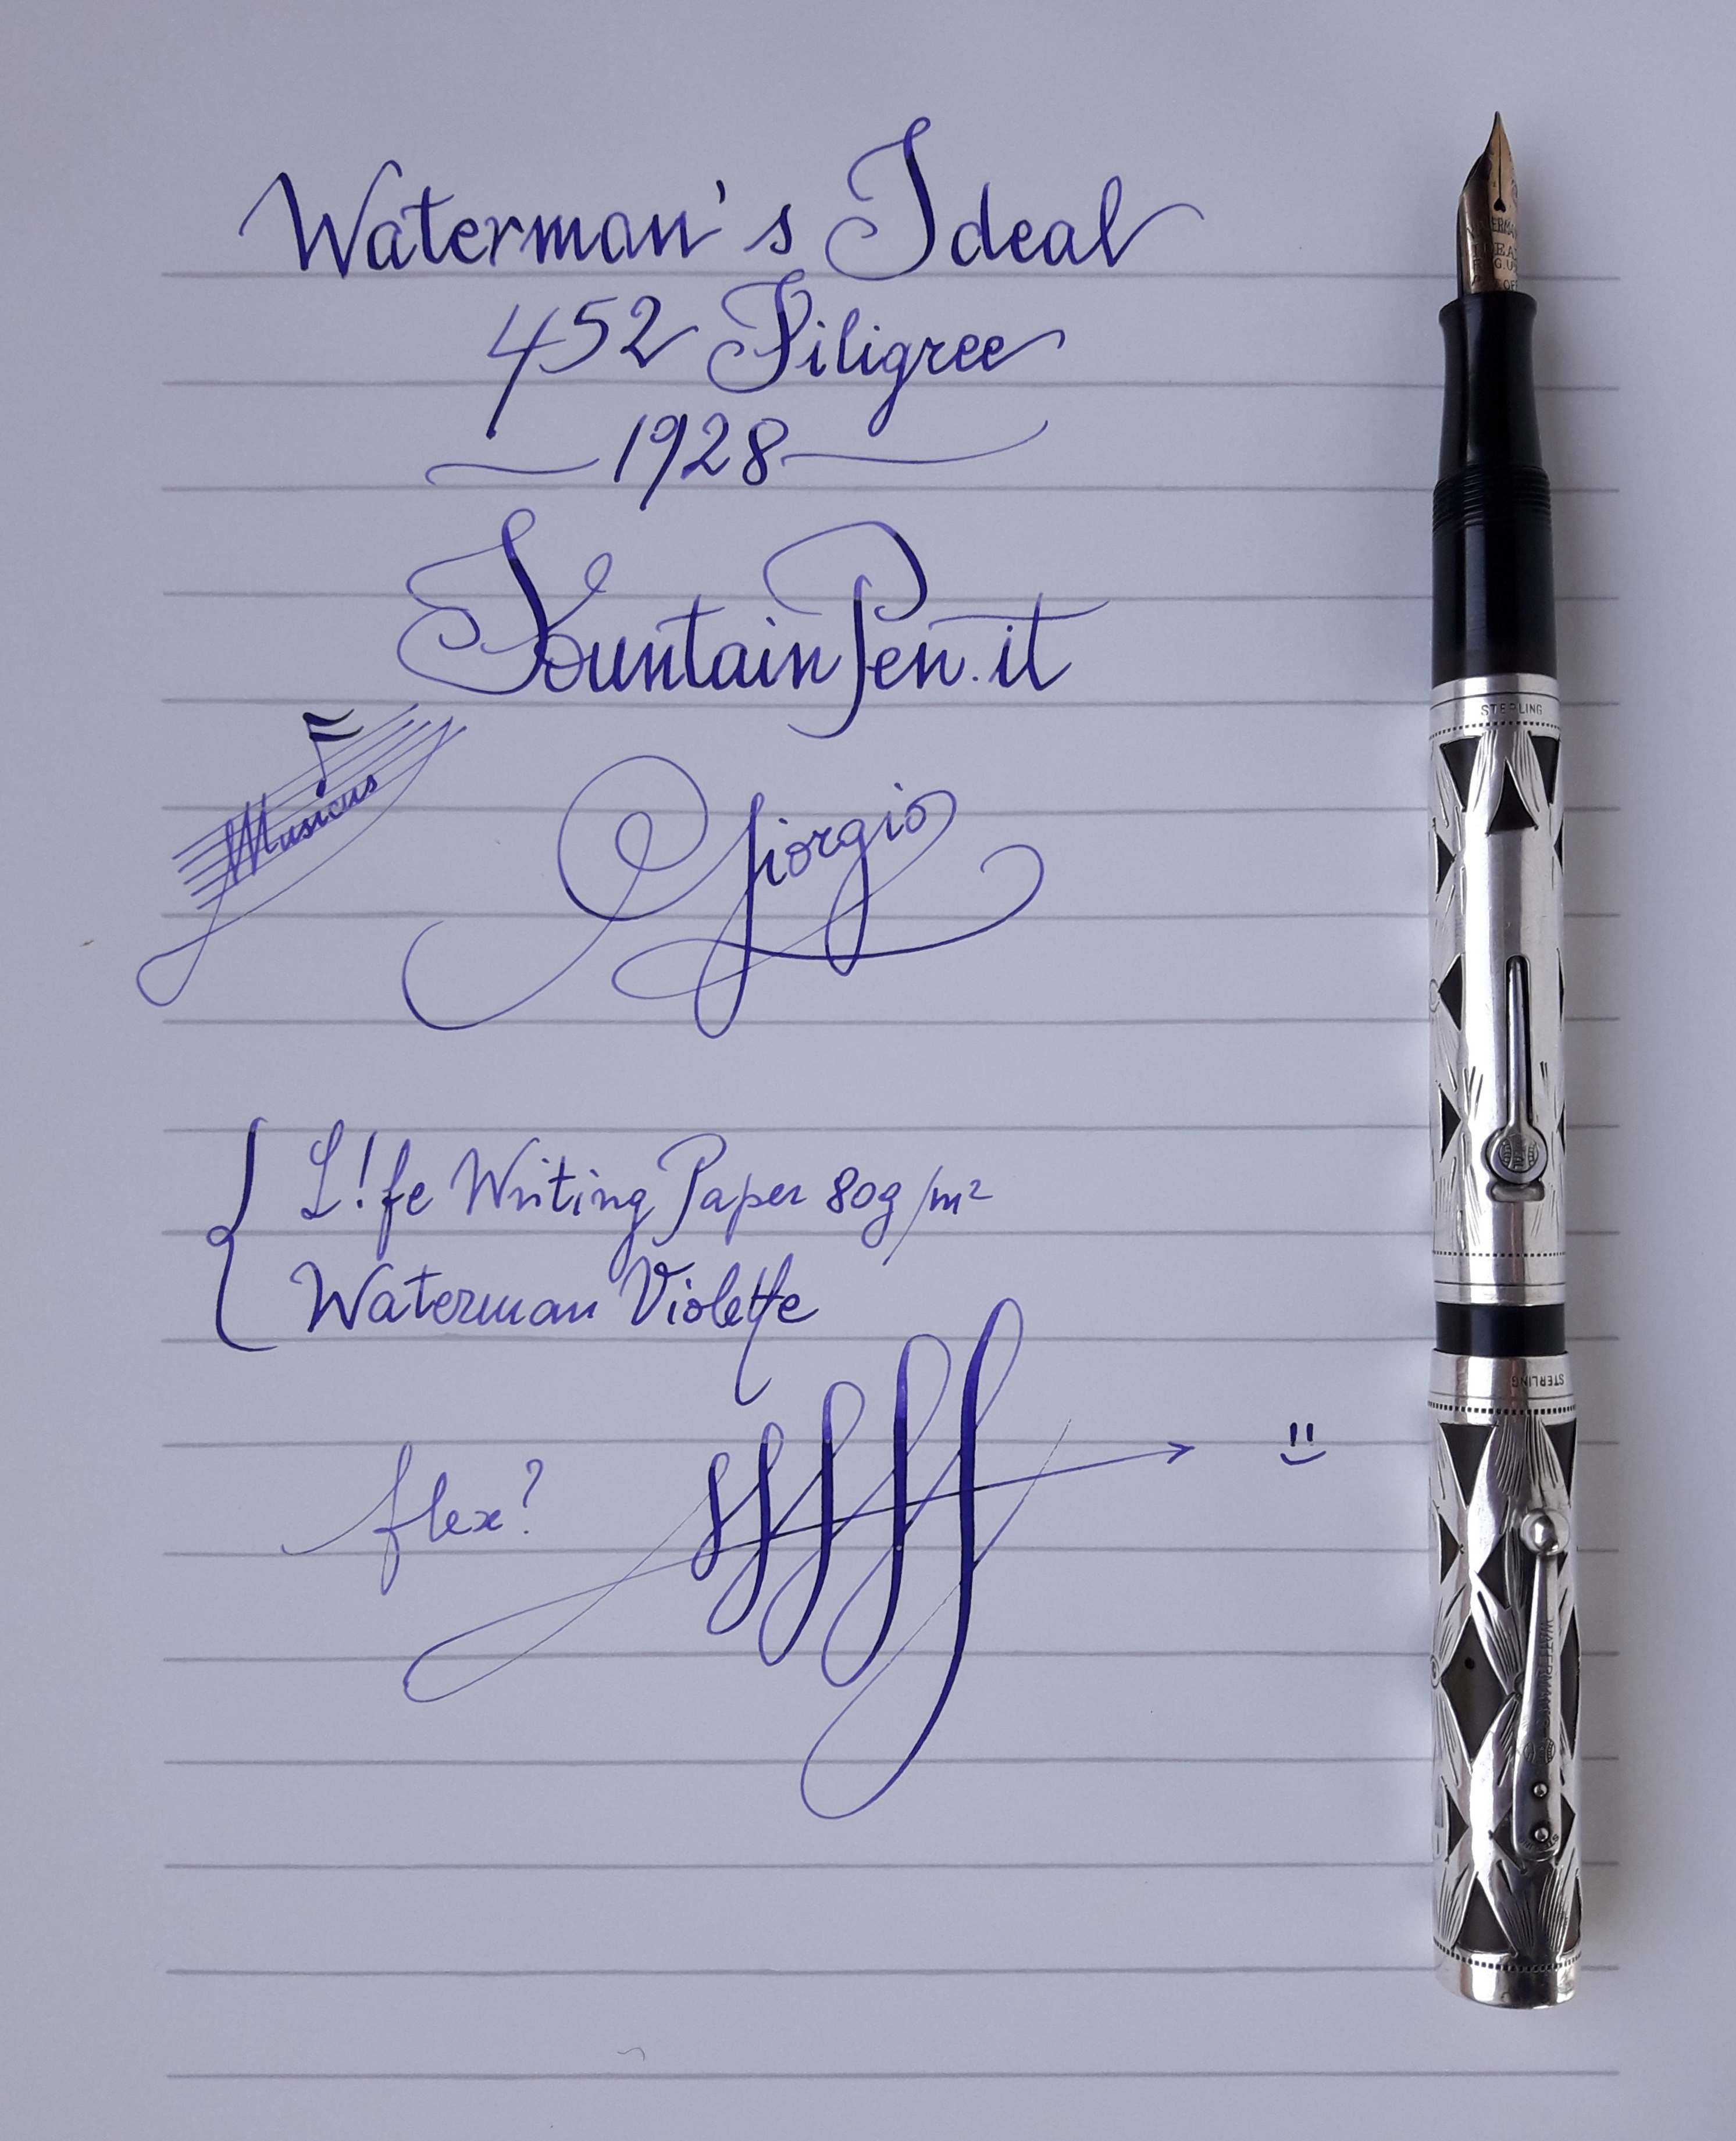 Waterman's Ideal
452 Filigree
1928
FountainPen.it
Musicus
Giorgio
L!fe Writing Paper 80g/m²
Waterman Violette
flex?
STERLING
STERLING
WATERMAN'S